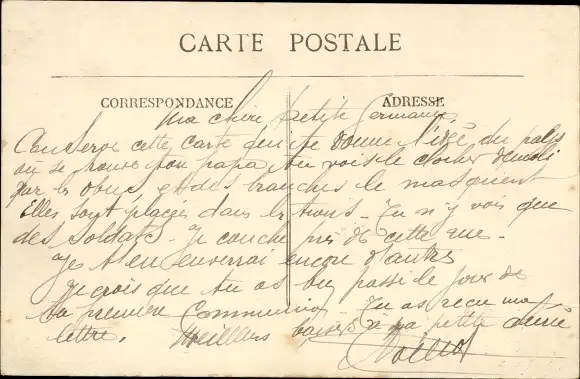 CARTE POSTALE
CORRESPONDANCE
ADRESSE
Ma chère petite Germaine,
Conserve cette carte qui te donne l'idée du pales
où se trouve ton papa tu vois le clocher démoli
par les obus, et des branches le masquent
Elles sont placées dans les - Tu n'y vois que
des soldats - Je couche près de cette rue -
Je t'en enverrai encore d'autres
Je crois que tu as bu passé le jour de
ta première Communion. Tu as reçu ma
lettre. Meilleurs baisers à ma petite chérie